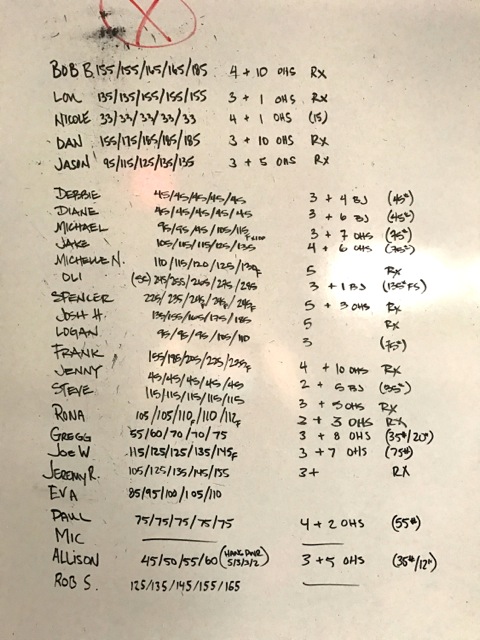 BOB B. 155/155/165/165/185 4 + 10 OHS Rx
LOU 135/135/155/155/155 3 + 1 OHS Rx
NICOLE 33/33/33/33/33 4 + 1 OHS (15)
DAN 155/175/185/185/185 3 + 10 OHS Rx
JASON 95/115/125/135/135 3 + 5 OHS Rx
DEBBIE 45/45/45/45/45 3 + 4 BJ (45#)
DIANE 45/45/45/45/45 3 + 6 BJ (45#)
MICHAEL 95/95/95/105/115 3 + 7 OHS (95#)
JAKE 105/115/115/125/135 4 + 6 OHS (75#)
MICHELLE N. 110/115/120/125/130F 5 Rx
OLI (SC) 245/255/265/275/285 3 + 1 BJ (135# FS)
SPENCER 225/235/245/245F/245F 5 + 3 OHS Rx
JOSH H. 135/155/165/175/185 5 Rx
LOGAN 95/95/95/105/110 3 (75#)
FRANK 155/185/205/225/235F 4 + 10 OHS Rx
JENNY 45/45/45/45/45 2 + 5 BJ (35#)
STEVE 115/115/115/115/115 3 + 5 OHS Rx
RONA 105/105/110F/110/112F 2 + 3 OHS Rx
GREGG 55/60/70/70/75 3 + 8 OHS (35#/20")
JOE W 115/125/125/135/145F 3 + 7 OHS (75#)
JEREMY R. 105/125/135/145/155 3+ Rx
EVA 85/95/100/105/110
PAUL 75/75/75/75/75 4 + 2 OHS (55#)
MIC
ALLISON 45/50/55/60 (HANG PWR 5/3/2/2) 3 + 5 OHS (35#/12")
ROB S. 125/135/145/155/165